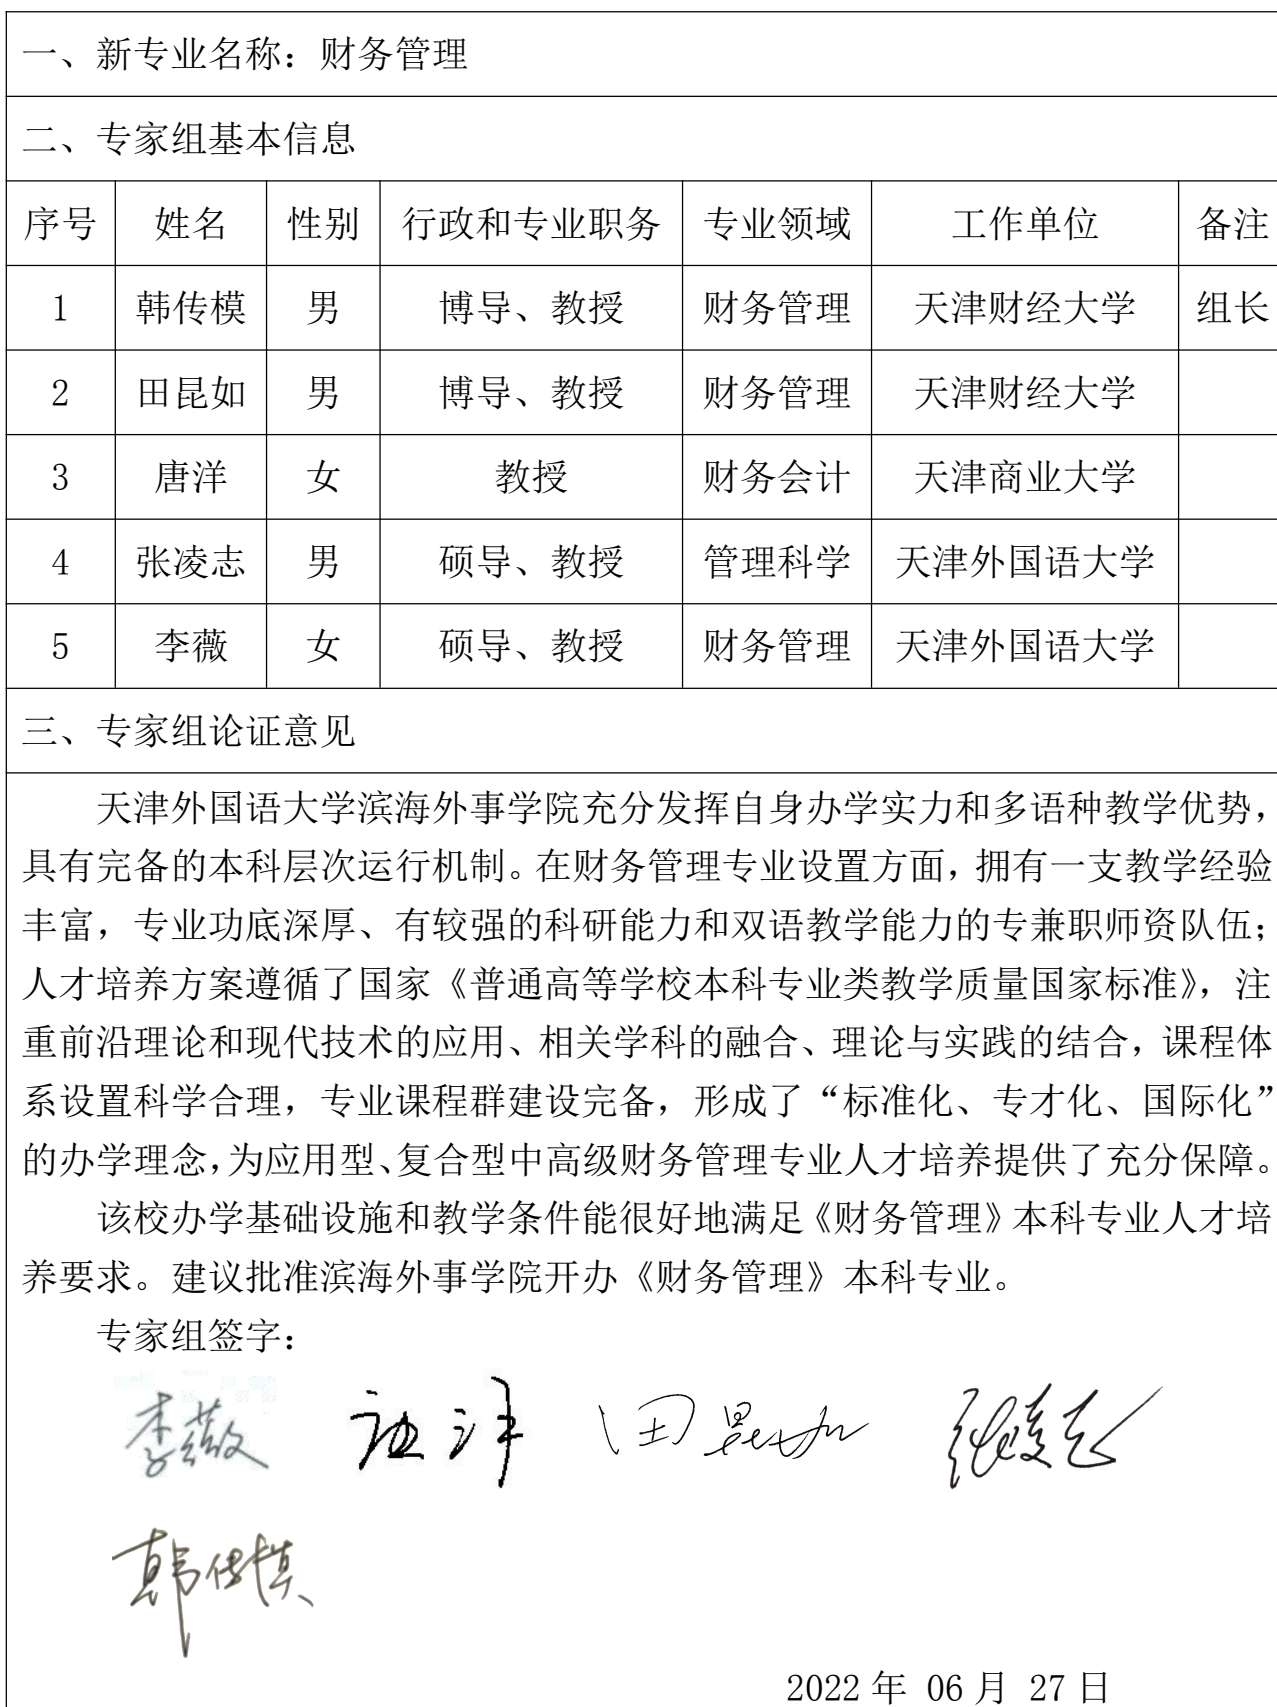 一、新专业名称：财务管理
二、专家组基本信息
序号 姓名 性别 行政和专业职务 专业领域 工作单位 备注
1 韩传模 男 博导、教授 财务管理 天津财经大学 组长
2 田昆如 男 博导、教授 财务管理 天津财经大学
3 唐洋 女 教授 财务会计 天津商业大学
4 张凌志 男 硕导、教授 管理科学 天津外国语大学
5 李薇 女 硕导、教授 财务管理 天津外国语大学
三、专家组论证意见
天津外国语大学滨海外事学院充分发挥自身办学实力和多语种教学优势，
具有完备的本科层次运行机制。在财务管理专业设置方面，拥有一支教学经验
丰富，专业功底深厚、有较强的科研能力和双语教学能力的专兼职师资队伍；
人才培养方案遵循了国家《普通高等学校本科专业类教学质量国家标准》，注
重前沿理论和现代技术的应用、相关学科的融合、理论与实践的结合，课程体
系设置科学合理，专业课程群建设完备，形成了“标准化、专才化、国际化”
的办学理念，为应用型、复合型中高级财务管理专业人才培养提供了充分保障。
该校办学基础设施和教学条件能很好地满足《财务管理》本科专业人才培
养要求。建议批准滨海外事学院开办《财务管理》本科专业。
专家组签字：
李薇 唐洋 田昆如 张凌志
韩传模
2022 年 06 月 27 日